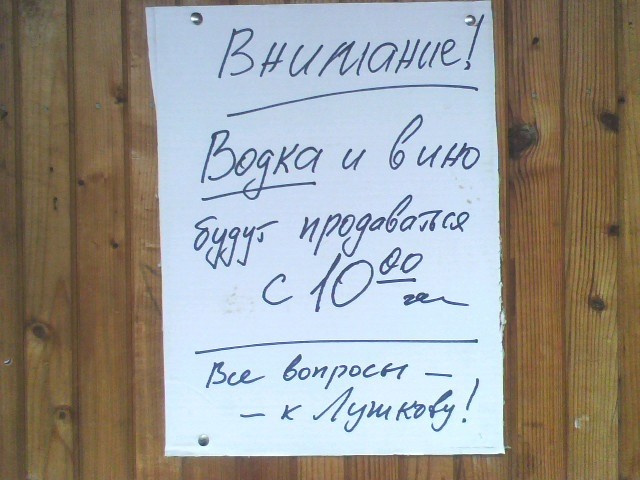 Внимание!
Водка и вино
будут продаваться
с 10 00 час
Все вопросы –
– к Лужкову!